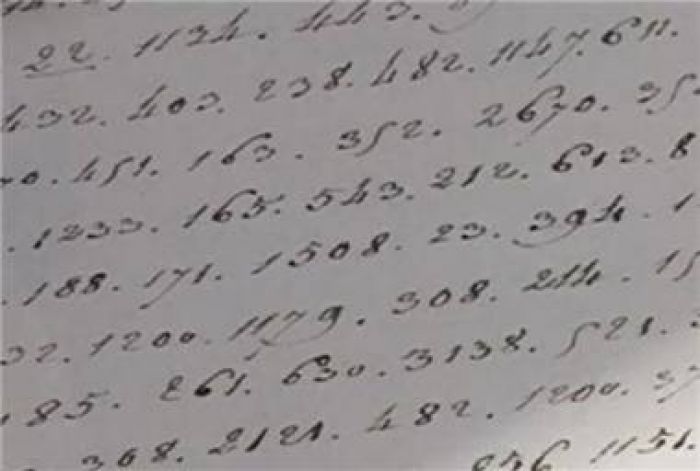 22. 1134. 443.
432. 403. 238. 482. 1147. 611.
70. 451. 163. 352. 2670. 35
. 1233. 165. 543. 212. 613. 8
. 188. 171. 1508. 23. 394. 1
32. 1200. 1179. 308. 214. 15
485. 261. 630. 3138. 521.
308. 2121. 482. 1200. 37
256 1151.